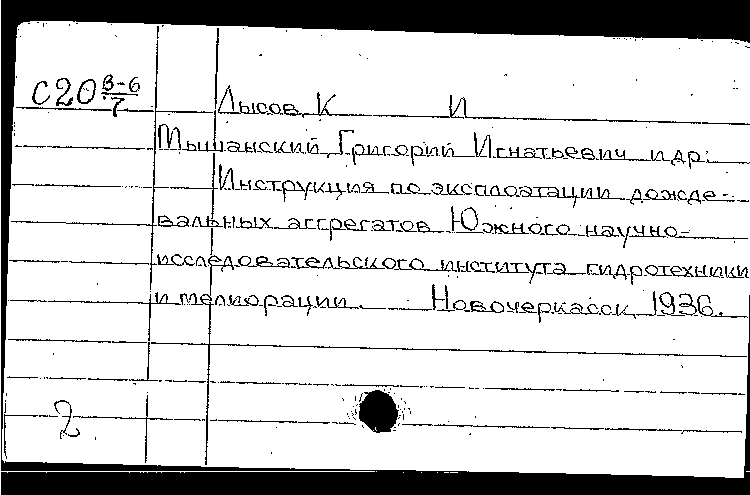 С20 В-6/7
Лысов, К И
Мычанский, Григорий Игнатьевич и др:
Инструкция по эксплоатации дожде-
вальных аггрегатов Южного научно-
исследовательского института гидротехники
и мелиорации. Новочеркасск, 1936.
2